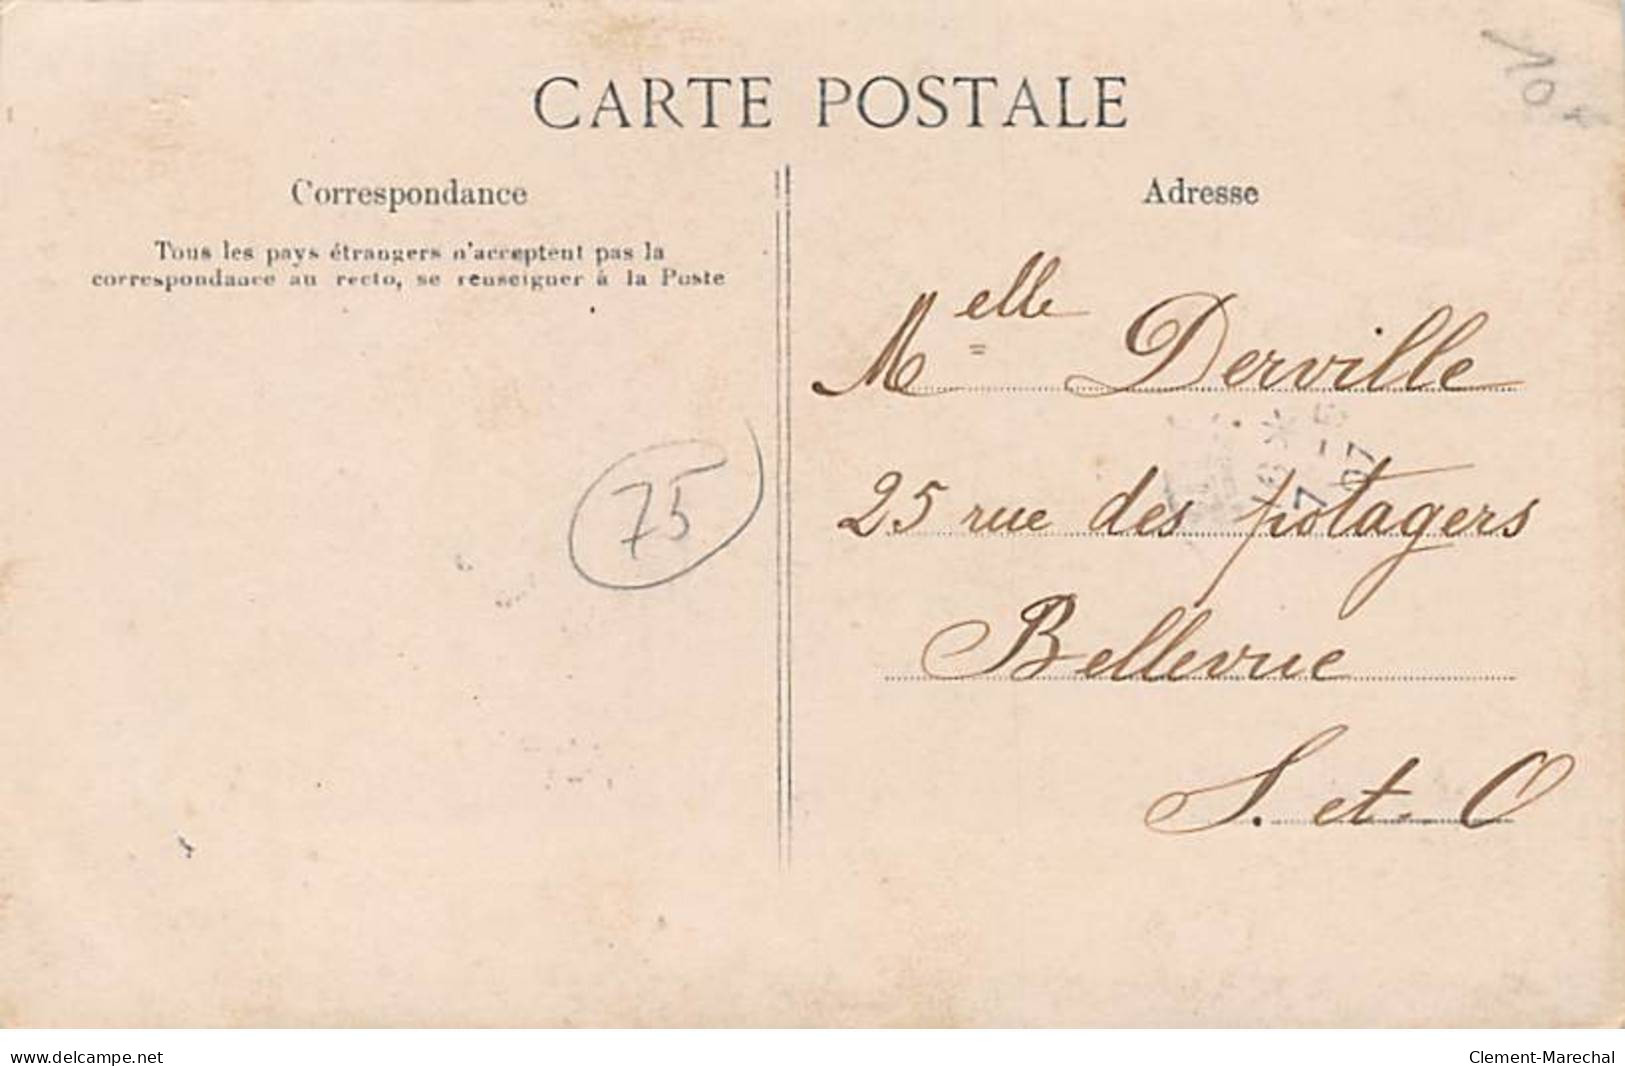 CARTE POSTALE
10 €
Correspondance
Tous les pays étrangers n'acceptent pas la
correspondance au recto, se renseigner à la Poste
75
Adresse
Melle Derville
25 rue des potagers
Bellevue
S. et. O
7 - 5
07
www.delcampe.net
Clement-Marechal